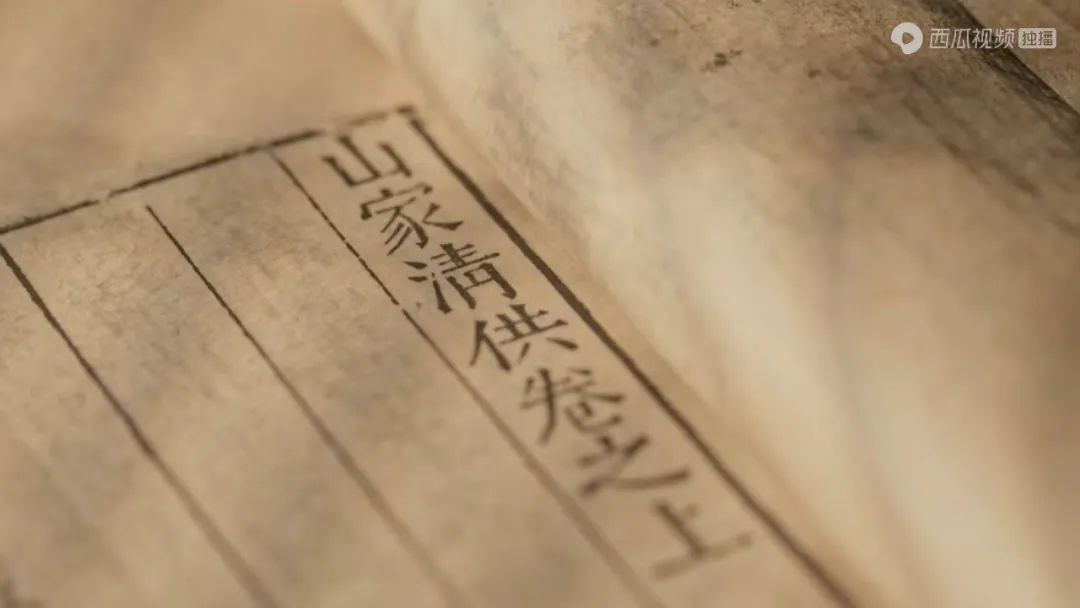 西瓜视频 独播
山家清供卷之上